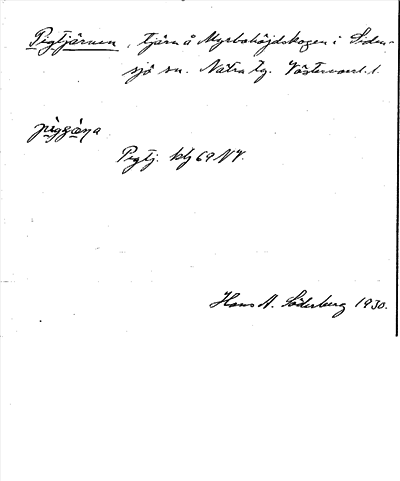 Pigtjärnen, tjärn å Myrbohöjdskogen i Siden-
sjö sn. Nätra tg. Västernorrl. l.
piggäna
Pigtj. kbj 69 NV.
Hans A. Söderberg 1930.